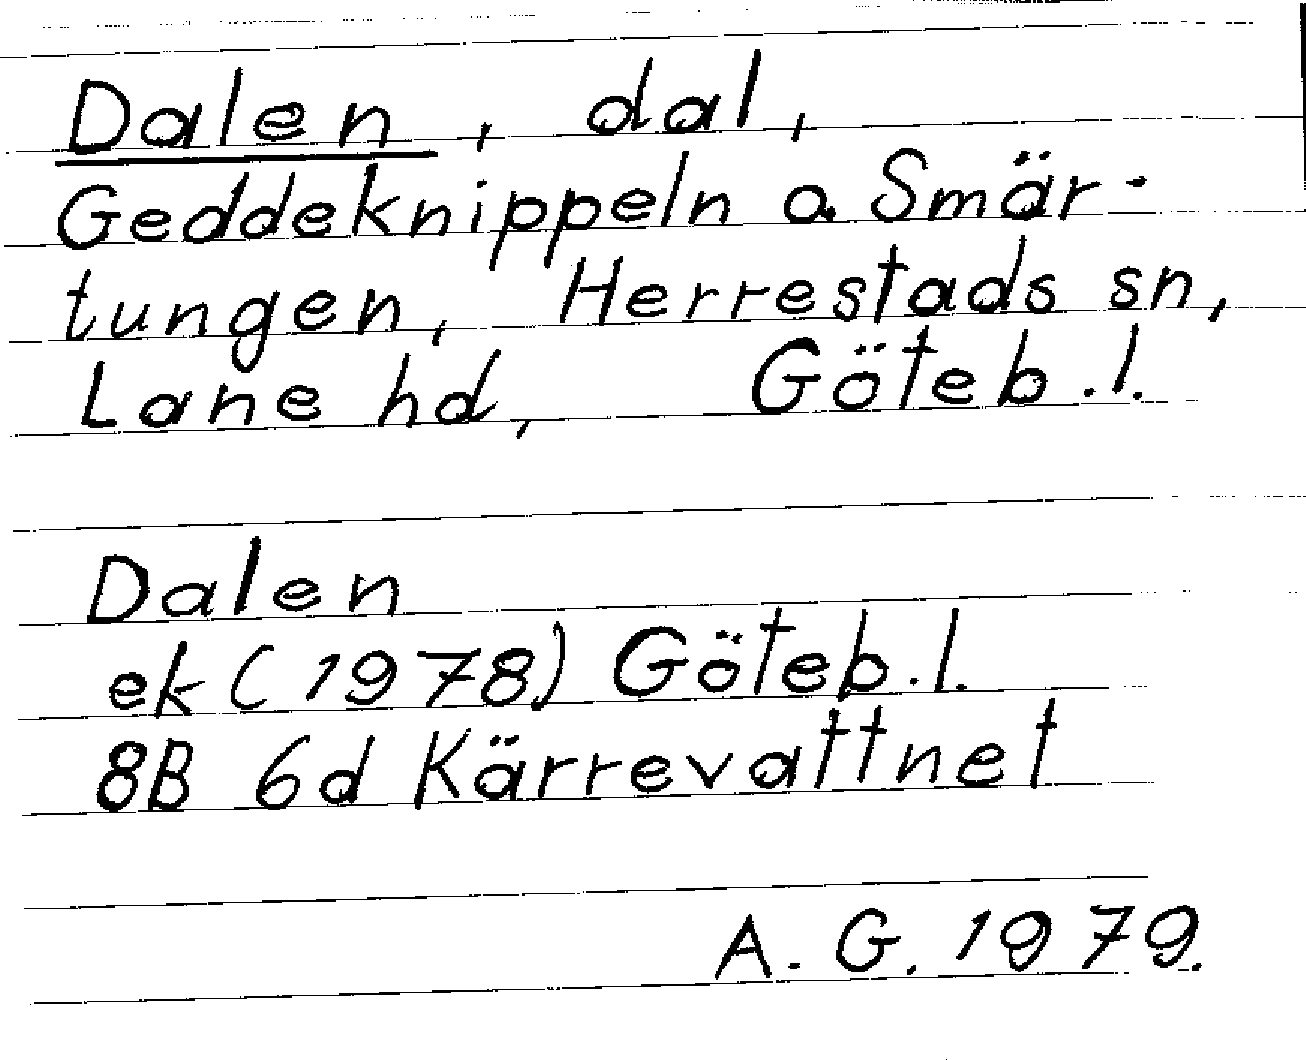 Dalen, dal,
Geddeknippeln o. Smär-
tungen, Herrestads sn,
Lane hd, Göteb.l.
Dalen
ek (1978) Göteb.l.
8B 6d Kärrevattnet
A.G. 1979.